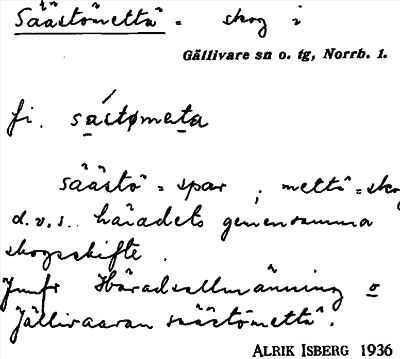 Säästömettä = skog i
Gällivare sn o. tg, Norrb. l.
fi. sästømeta
säästö = spar ; mettä = skog
d.v.s. häradets gemensamma
skogsskifte.
Jmfr Häradsallmänning o
Jällivaaran säästömettä.
ALRIK ISBERG 1936